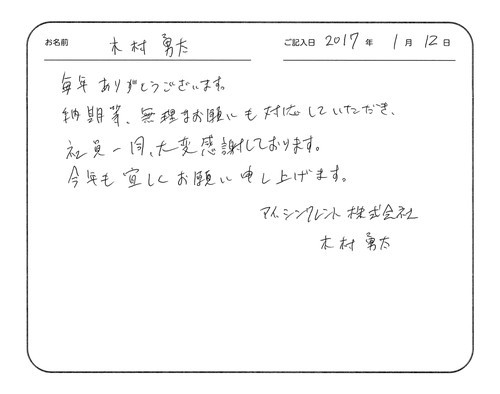 お名前 木村 勇太
ご記入日 2017 年 1 月 12 日
毎年ありがとうございます。
納期等、無理なお願いも対応していただき、
社員一同、大変感謝しております。
今年も宜しくお願い申し上げます。
アイ・シンクレント株式会社
木村 勇太